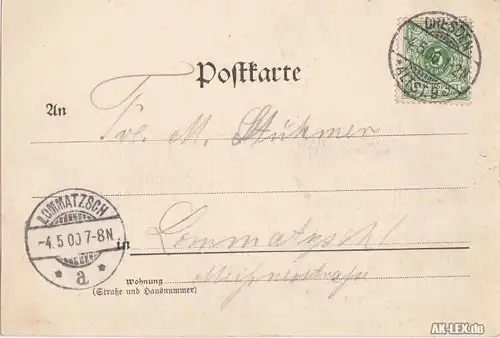 DRESDEN
ALTST. 9
5
Postkarte
An
Frl. M. Stühmer
LOMMATZSCH
-4.5.00 7-8N.
a
in Lommatzsch
Meißnerstraße
Wohnung
(Straße und Hausnummer)
AK-LEX.de